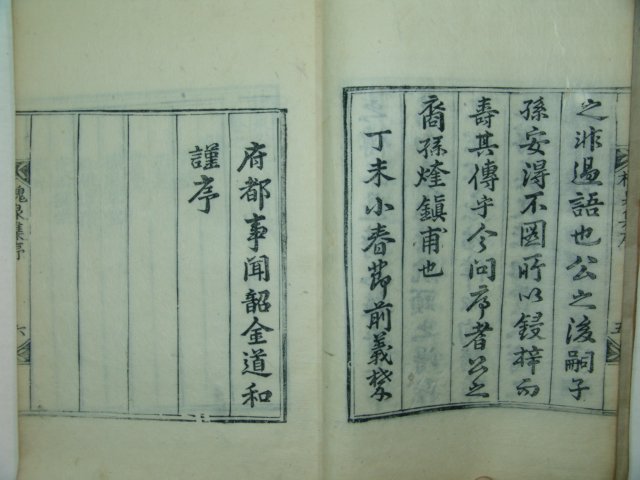 之非過語也公之後嗣子
孫安得不圖所以鋟梓而
壽其傳乎今問序者公之
裔孫煃鎭甫也
丁未小春節前義禁
府都事聞韶金道和
謹序
槐泉集序
六
五